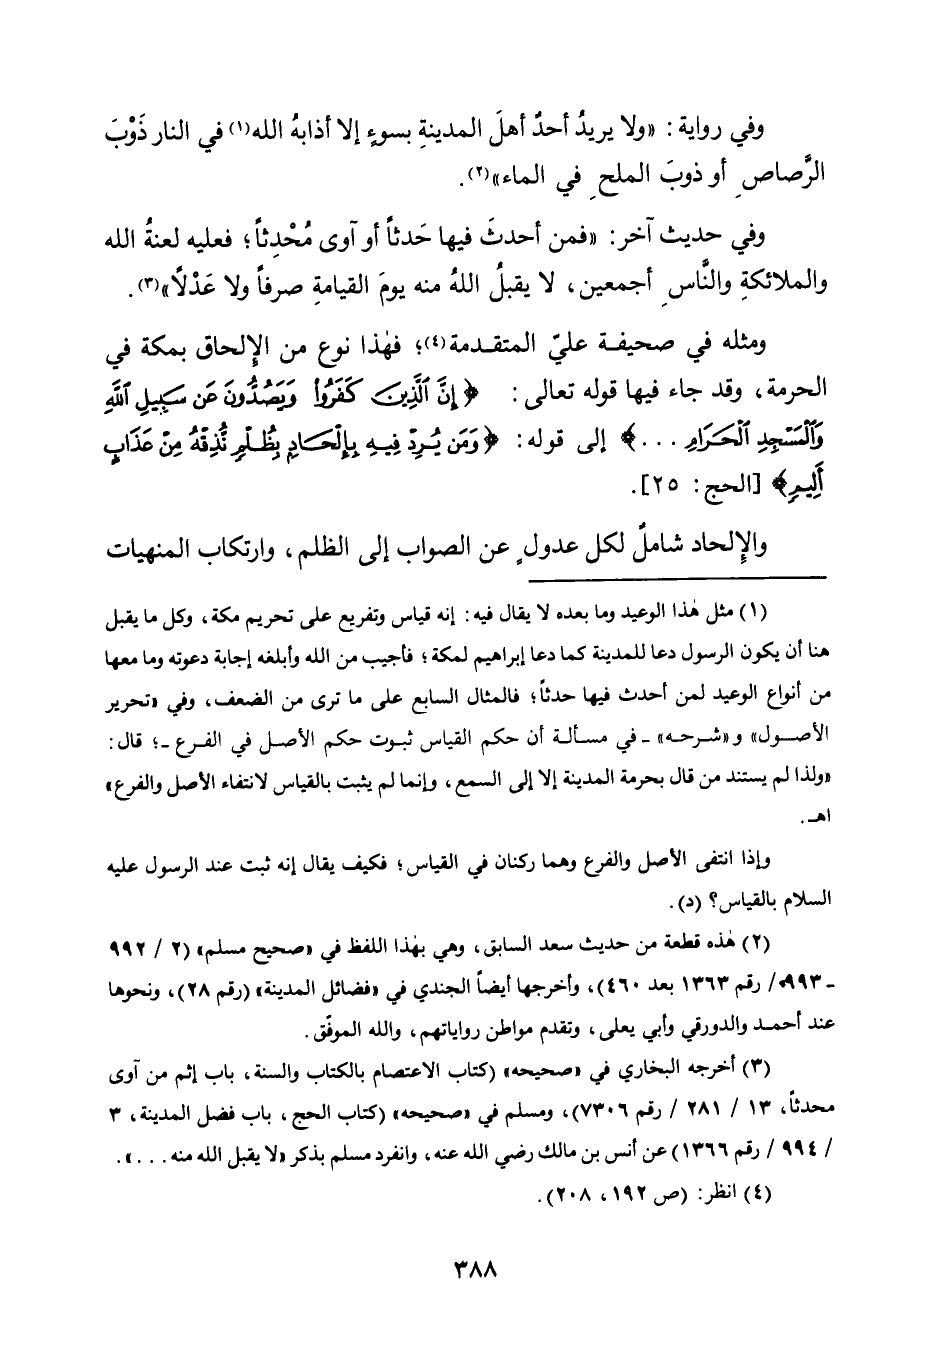 وفي رواية: «ولا يريدُ أحدٌ أهلَ المدينةِ بسوءٍ إلا أذابهُ الله(١) في النار ذَوْبَ
الرَّصاصِ أو ذوبَ الملحِ في الماء»(٢).
وفي حديث آخر: «فمن أحدثَ فيها حَدثاً أو آوى مُحْدِثاً؛ فعليه لعنةُ الله
والملائكةِ والنَّاسِ أجمعين، لا يقبلُ اللهُ منه يومَ القيامةِ صرفاً ولا عَدْلاً»(٣).
ومثله في صحيفة عليّ المتقدمة(٤)؛ فهٰذا نوع من الإِلحاق بمكة في
الحرمة، وقد جاء فيها قوله تعالى: ﴿إِنَّ ٱلَّذِينَ كَفَرُواْ وَيَصُدُّونَ عَن سَبِيلِ ٱللَّهِ
وَٱلْمَسْجِدِ ٱلْحَرَامِ ...﴾ إلى قوله: ﴿وَمَن يُرِدْ فِيهِ بِإِلْحَادٍ بِظُلْمٍ نُّذِقْهُ مِنْ عَذَابٍ
أَلِيمٍ﴾ [الحج: ٢٥].
والإِلحاد شاملٌ لكل عدولٍ عن الصواب إلى الظلم، وارتكاب المنهيات
(١) مثل هٰذا الوعيد وما بعده لا يقال فيه: إنه قياس وتفريع على تحريم مكة، وكل ما يقبل
هنا أن يكون الرسول دعا للمدينة كما دعا إبراهيم لمكة؛ فأجيب من الله وأبلغه إجابة دعوته وما معها
من أنواع الوعيد لمن أحدث فيها حدثاً؛ فالمثال السابع على ما ترى من الضعف، وفي «تحرير
الأصول» و«شرحه» ـ في مسألة أن حكم القياس ثبوت حكم الأصل في الفرع ـ؛ قال:
«ولذا لم يستند من قال بحرمة المدينة إلا إلى السمع، وإنما لم يثبت بالقياس لانتفاء الأصل والفرع»
اهـ.
وإذا انتفى الأصل والفرع وهما ركنان في القياس؛ فكيف يقال إنه ثبت عند الرسول عليه
السلام بالقياس؟ (د).
(٢) هٰذه قطعة من حديث سعد السابق، وهي بهٰذا اللفظ في «صحيح مسلم» (٢ / ٩٩٢
ـ ٩٩٣/ رقم ١٣٦٣ بعد ٤٦٠)، وأخرجها أيضاً الجندي في «فضائل المدينة» (رقم ٢٨)، ونحوها
عند أحمد والدورقي وأبي يعلى، وتقدم مواطن رواياتهم، والله الموفّق.
(٣) أخرجه البخاري في «صحيحه» (كتاب الاعتصام بالكتاب والسنة، باب إثم من آوى
محدثاً، ١٣ / ٢٨١ / رقم ٧٣٠٦)، ومسلم في «صحيحه» (كتاب الحج، باب فضل المدينة، ٣
/ ٩٩٤ / رقم ١٣٦٦) عن أنس بن مالك رضي الله عنه، وانفرد مسلم بذكر «لا يقبل الله منه ...».
(٤) انظر: (ص ١٩٢، ٢٠٨).
٣٨٨